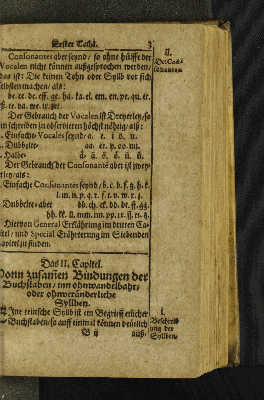 Erster Theil. 3
Consonantes aber seynd / so ohne hülffe der
Vocalen nicht können außgesprochen werden /
das ist: Die keinen Thon oder Syllb vor sich
selbsten machen / als:
be. ce. de. eff. ge. ha. ka. el. em. en. pe. qu. er.
Der Gebrauch der Vocalen ist Dreyerley / so
im schreiben zu observiren höchst nöhtig / alß:
Einfache Vocales seynd / a. e. i. o. u.
Dubbelte- aa. ee. y. oo. uu.
Halbe- ä. ö. ü.
Der Gebrauch der Consonanten aber ist zwey-
erley / als:
Einfache Consonantes seynd / b. c. d. f. g. h. k.
l. m. n. p. q. r. s. t. v. w. x. z.
Dubbelte- aber bb. ch. ck. dd. dt. ff. gg.
Hiervon General Erklährung im dritten Ca-
pitel / und Special Erährterung im Siebenden
Capitel zu finden.
II.
Der Con-
sonanten.
Das II. Capitel.
Vonn zusamen Bindungen der
Buchstaben / inn ohnwandelbahr /
oder ohnveränderliche
Syllben.
Jne teutsche Syllb ist ein Begrieff etlicher
Buchstaben / so auff einmal können deutlich
B ij auß-
I.
Beschreib
ung der
Syllben.